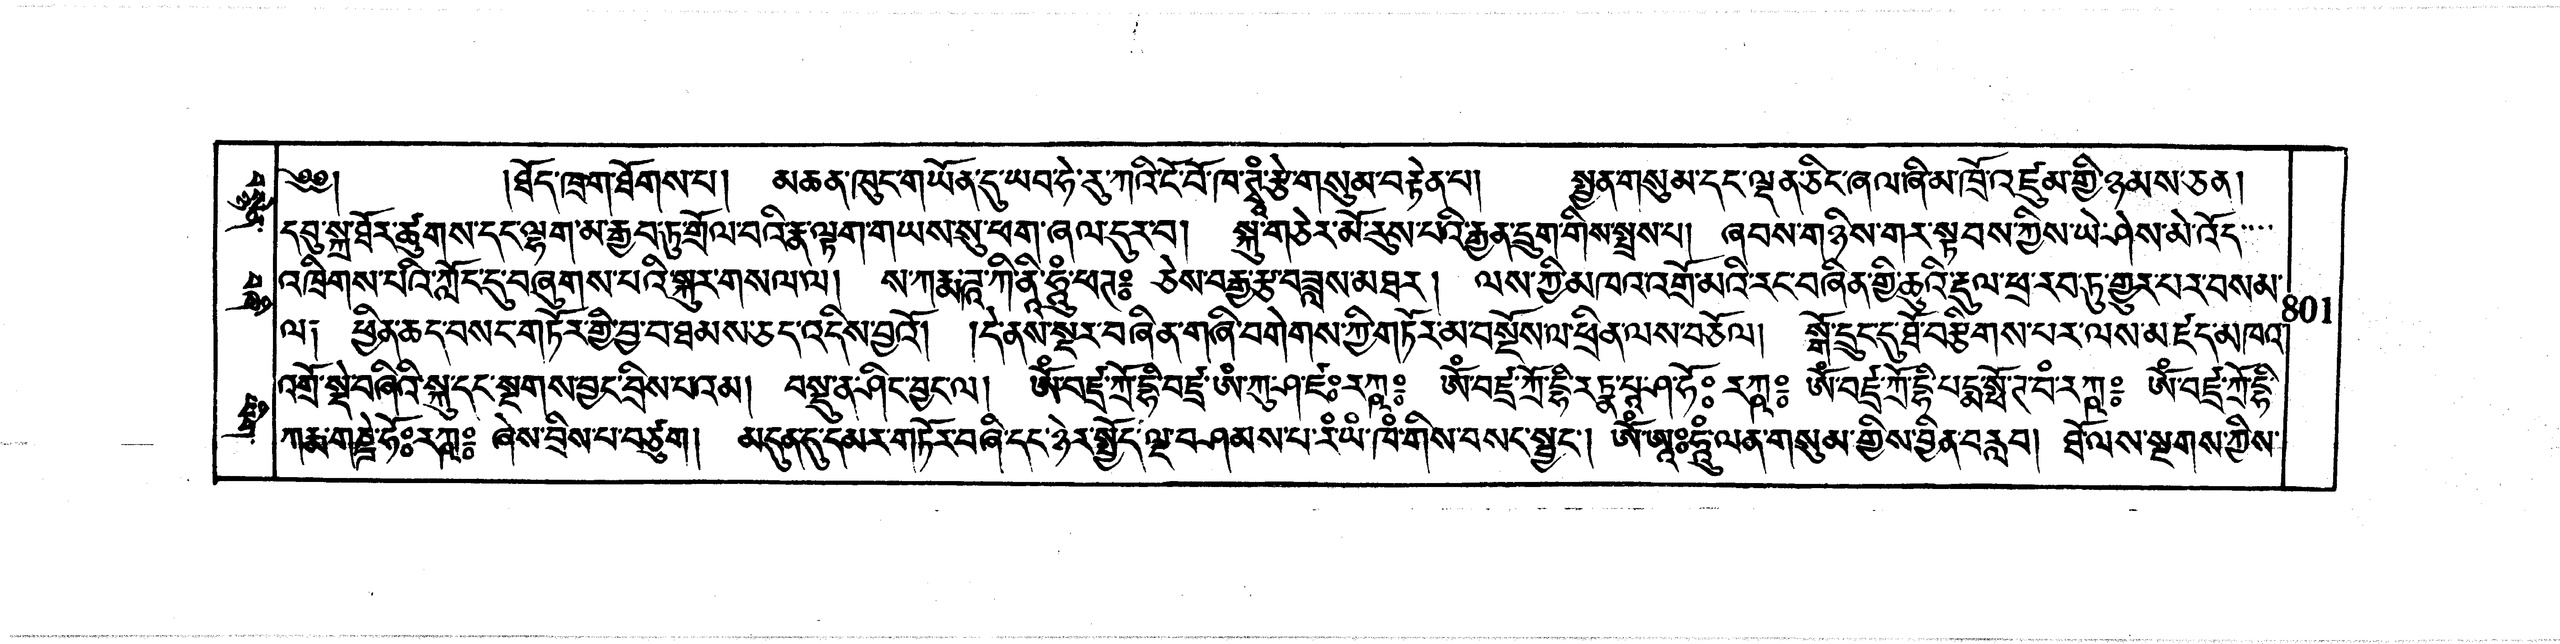 ༄༅། །ཐོད་ཁྲག་ཐོགས་པ། མཆན་ཁུང་གཡོན་དུ་ཡབ་ཧེ་རུ་ཀའི་ངོ་བོ་ཁ་ཊྭཾ་རྩེ་གསུམ་བརྟེན་པ། སྤྱན་གསུམ་དང་ལྡན་ཅིང་ཞལ་ཞི་མ་ཁྲོ་འཛུམ་གྱི་ཉམས་ཅན།
དབུ་སྐྲ་ཐོར་ཚུགས་དང་ལྷག་མ་རྒྱབ་ཏུ་གྲོལ་བའི་རྣ་ལྟག་གཡས་སུ་ཕག་ཞལ་དུར་བ། སྐུ་གཅེར་མོ་རུས་པའི་རྒྱན་དྲུག་གིས་སྤྲས་པ། ཞབས་གཉིས་གར་སྟབས་ཀྱིས་ཡེ་ཤེས་མེ་འོད
འཁྲིགས་པའི་ཀློང་དུ་བཞུགས་པའི་སྐུར་གསལ་ལ། ས་ཀརྨ་ཌཱ་ཀི་ནཱི་ཧཱུྃ་ཕཊ༔ ཅེས་བརྒྱ་རྩ་བཟླས་མཐར། ལས་ཀྱི་མཁའ་འགྲོ་མའི་རང་བཞིན་གྱི་ཆུའི་རྡུལ་ཕྲ་རབ་ཏུ་གྱུར་པར་བསམ་
ལ། ཕྱིན་ཆད་བསང་གཏོར་གྱི་བྱ་བ་ཐམས་ཅད་འདིས་བྱའོ། །དེ་ནས་སྔར་བཞིན་གཞི་བགེགས་ཀྱི་གཏོར་མ་བསྔོས་ལ་ཕྲིན་ལས་བཅོལ། སྒོ་དྲུང་དུ་ཐོ་བརྩིགས་པར་ལས་མཛད་མཁའ
འགྲོ་སྡེ་བཞིའི་སྐུ་དང་སྔགས་བྱང་བྲིས་པའམ། བསྡུ་ན་ཤིང་བྱང་ལ། ཨོཾ་བཛྲ་ཀྲོ་དྷི་བཛྲ་ཨཾ་ཀུ་ཤ་ཛཿ༔རཀྵ༔ ཨོཾ་བཛྲ་ཀྲོ་དྷི་རཏྣ་པཱ་ཤ་ཧོ༔ རཀྵ༔ ཨོཾ་བཛྲ་ཀྲོ་དྷི་པདྨ་སྥོ་ཊ་བཾ་རཀྵ༔ ཨོཾ་བཛྲ་ཀྲོ་དྷི
ཀརྨ་གཎྜེ་ཧོ༔རཀྵ༔ ཞེས་བྲིས་པ་བཙུག། མདུན་དུ་དམར་གཏོར་བཞི་དང་ཉེར་སྤྱོད་ལྔ་བཤམས་པ་རཾ་ཡཾ་ཁཾ་གིས་བསང་སྦྱང་། ཨོཾ་ཨཱ༔ཧཱུྃ་ལན་གསུམ་གྱིས་བྱིན་བརླབ། ཐོ་ལས་སྔགས་ཀྱིས་
801